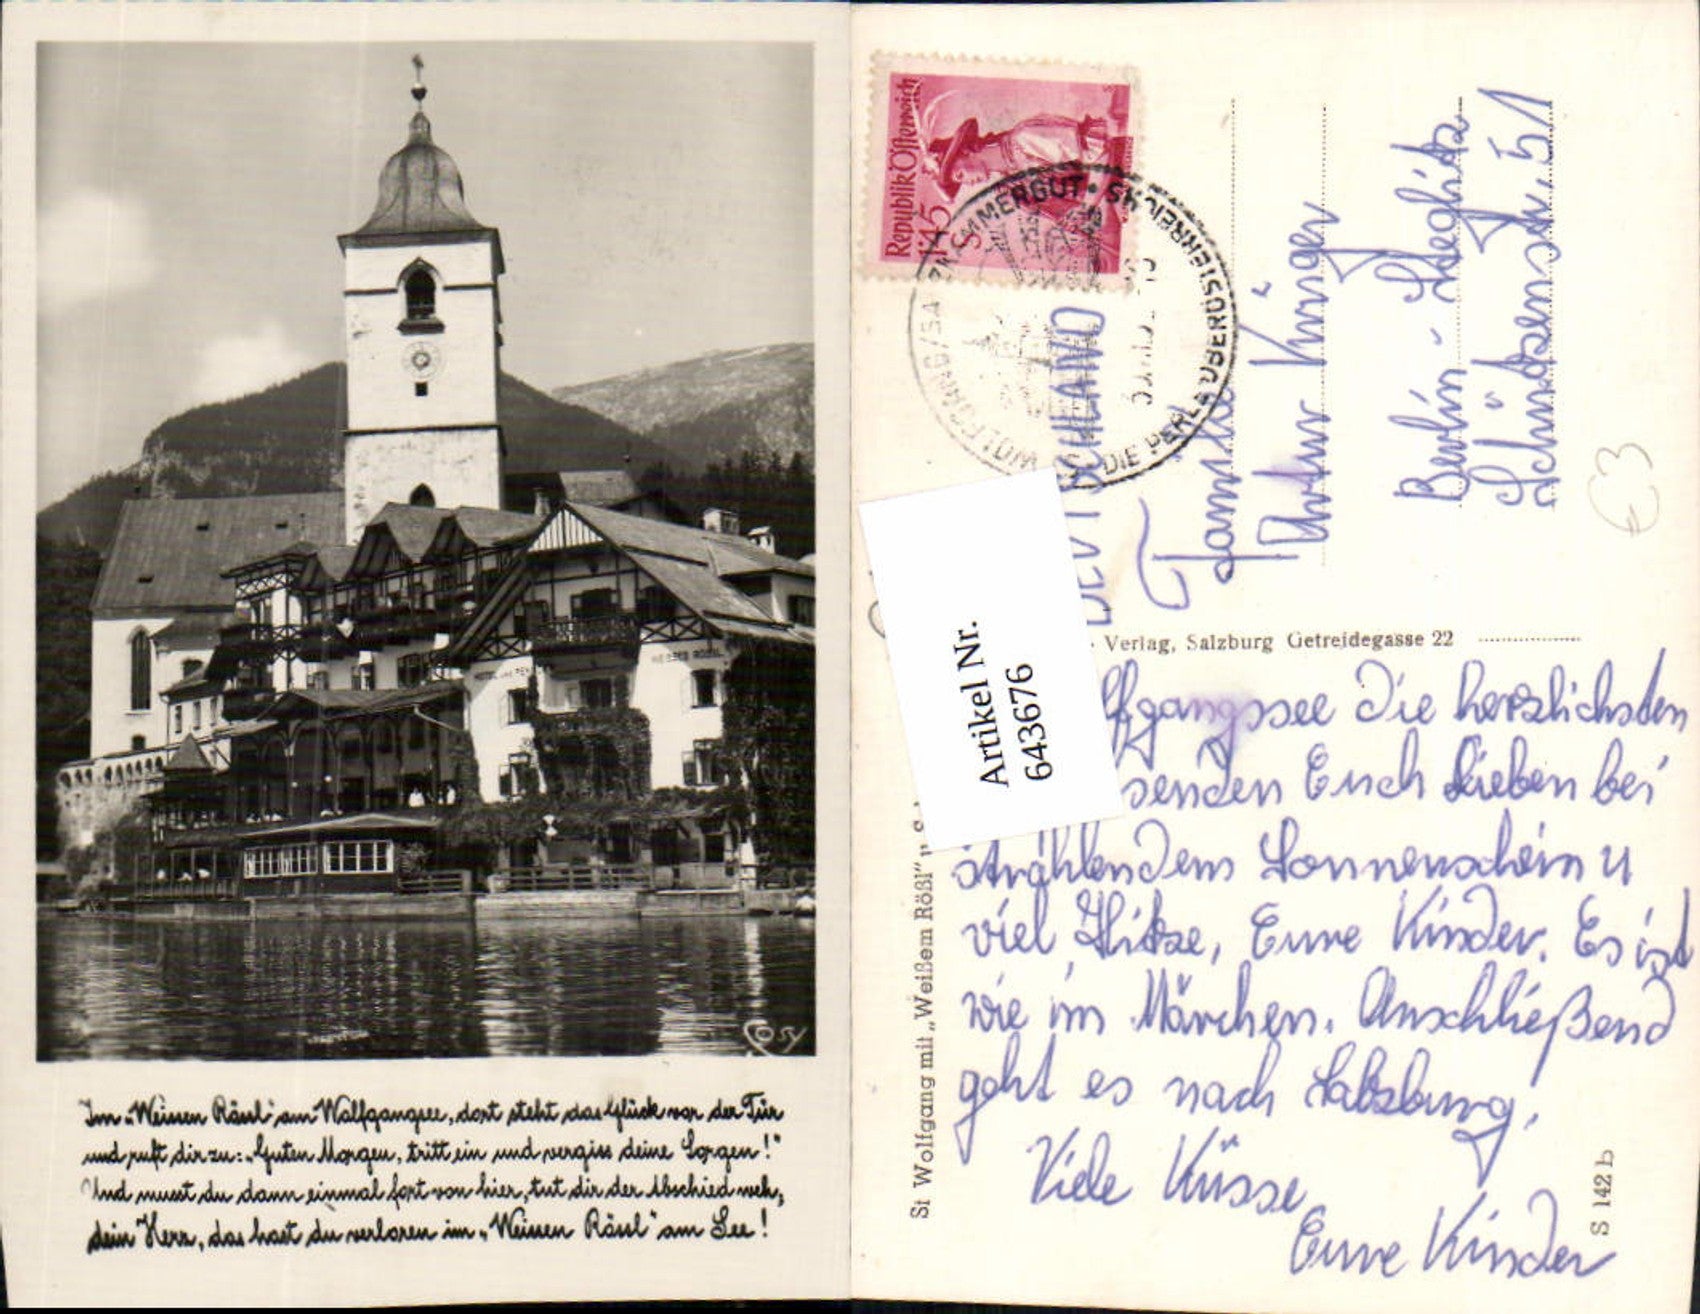 HOTEL
WEISSES RÖSSL
Cosy
Im „Weissen Rössl“ am Wolfgangsee, dort steht das Glück vor der Tür
und ruft dir zu: „Guten Morgen, tritt ein und vergiss deine Sorgen!“
Und musst du dann einmal fort von hier, tut dir der Abschied weh;
dein Herz, das hast du verloren im „Weissen Rössl“ am See!
Republik Österreich
1'45
S
SALZKAMMERGUT • OBERÖSTERREICHS
DIE PERLE
WOLFGANG
DEUTSCHLAND
Familie
Artur Krüger
Berlin - Steglitz
Schützenstr. 51
€3
Artikel Nr.
6436676
Verlag, Salzburg Getreidegasse 22
St Wolfgang mit „Weißem Rößl“
S 142 b
lfgangssee die herzlichsten
senden Euch Lieben bei
strahlendem Sonnenschein u
viel Hitze, Eure Kinder. Es ist
wie im Märchen. Anschließend
geht es nach Salzburg.
Viele Küsse
Eure Kinder